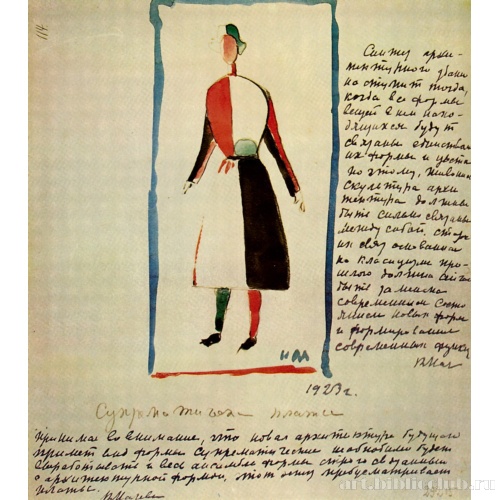 114
Синтез архи-
тектурного здани
наступит тогда,
когда все формы
вещей в нем нахо-
дящихся будут
связаны единством
их формы и цвета
поэтому, живопись
скульптура архи
тектура должны
быть сильно связаны
между собой. стара
их связ основанная
на класицизме про-
шлого должна сейчас
быть заменена
современным состо
янием новых форм
и формирования
современных функц
К Мал
КМ
1923 г.
Супрематическое платье
принимая во внимание, что новая архитектура будущего
примет вид формы супрематические необходимо будет
выработать и весь ансамбль форм строго связанный
с архитектурной формой, этот эскиз предусматривает
платье.
К Малевич
art.biblioclub.ru